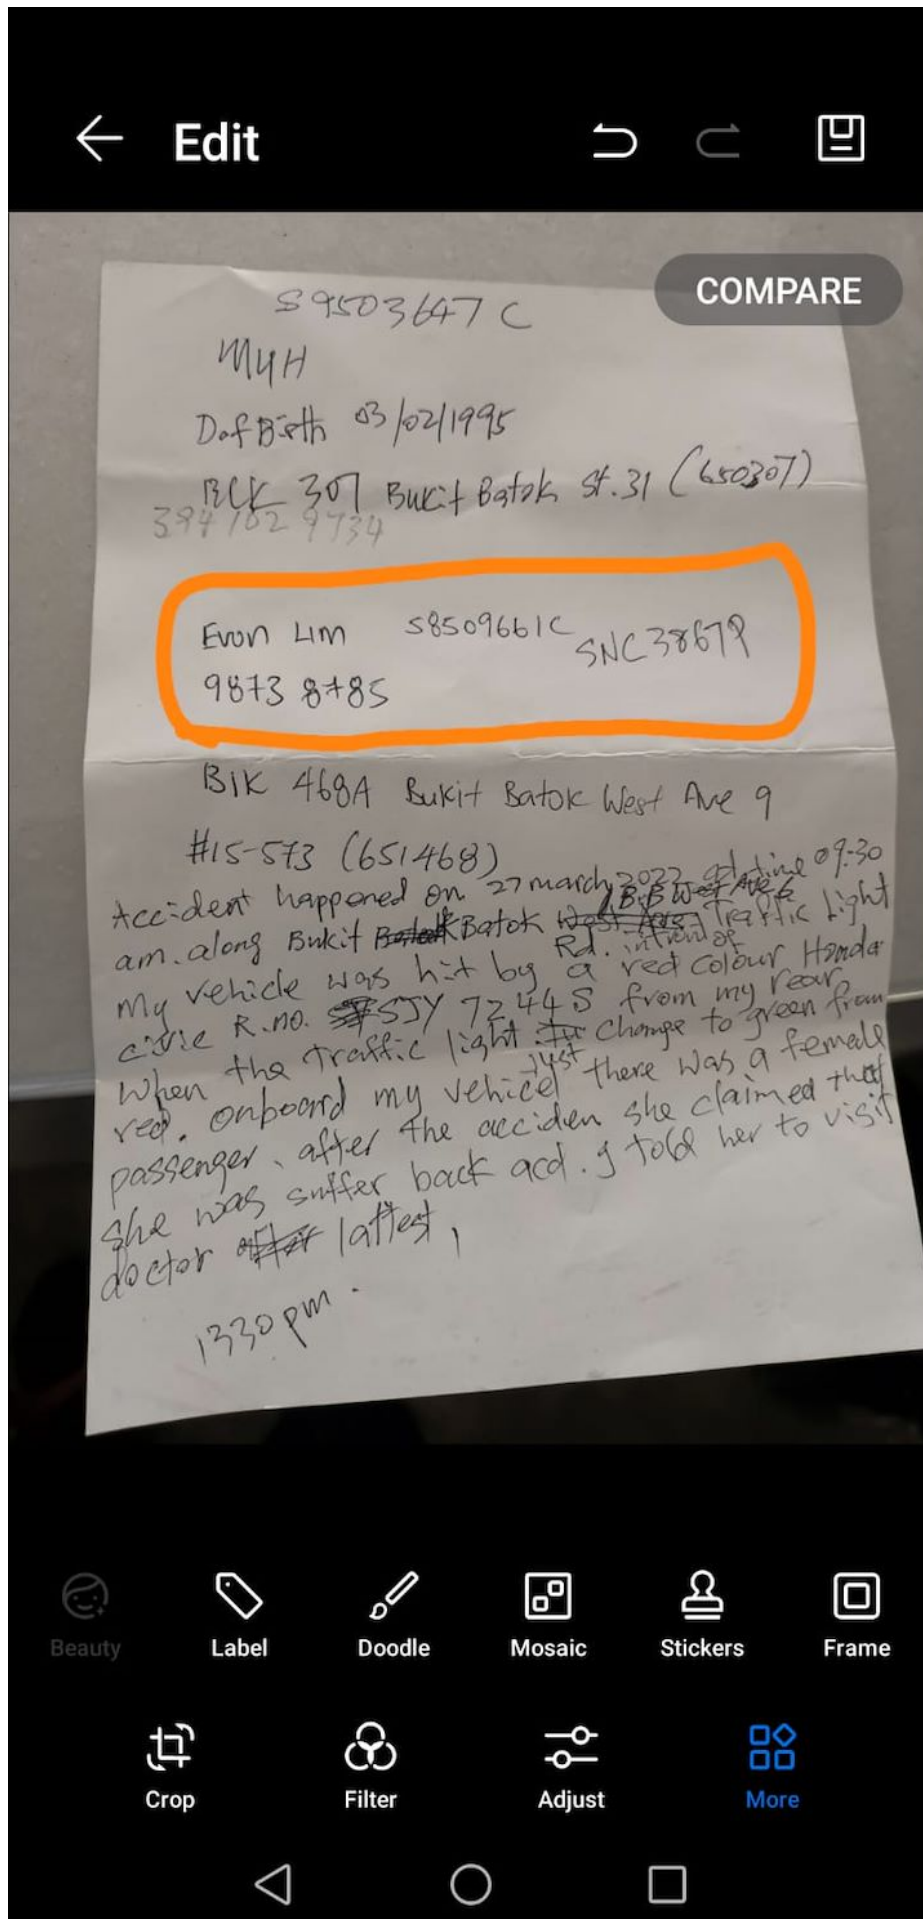 Edit
COMPARE
S9503647C
MYH
D of Birth 03/02/1995
BLK 307 Bukit Batok St. 31 (650307)
394 102 9734
Evon Lim S8509661C SNC3867P
9873 8785
Blk 468A Bukit Batok West Ave 9
#15-573 (651468)
Accident happened on 27 march, 2022 at time 09.30
am. along Bukit Batok B.B West Ave 6 Traffic Light
Rd. infront of
My vehicle was hit by a red colour Honda
civic R.no. SJY 7244S from my rear
When the traffic light just change to green from
red. onboard my vehicel there was a female
passenger, after the acciden she claimed that
she was suffer back acd. I told her to visit
doctor lattest,
1330pm.
Beauty Label Doodle Mosaic Stickers Frame
Crop Filter Adjust More